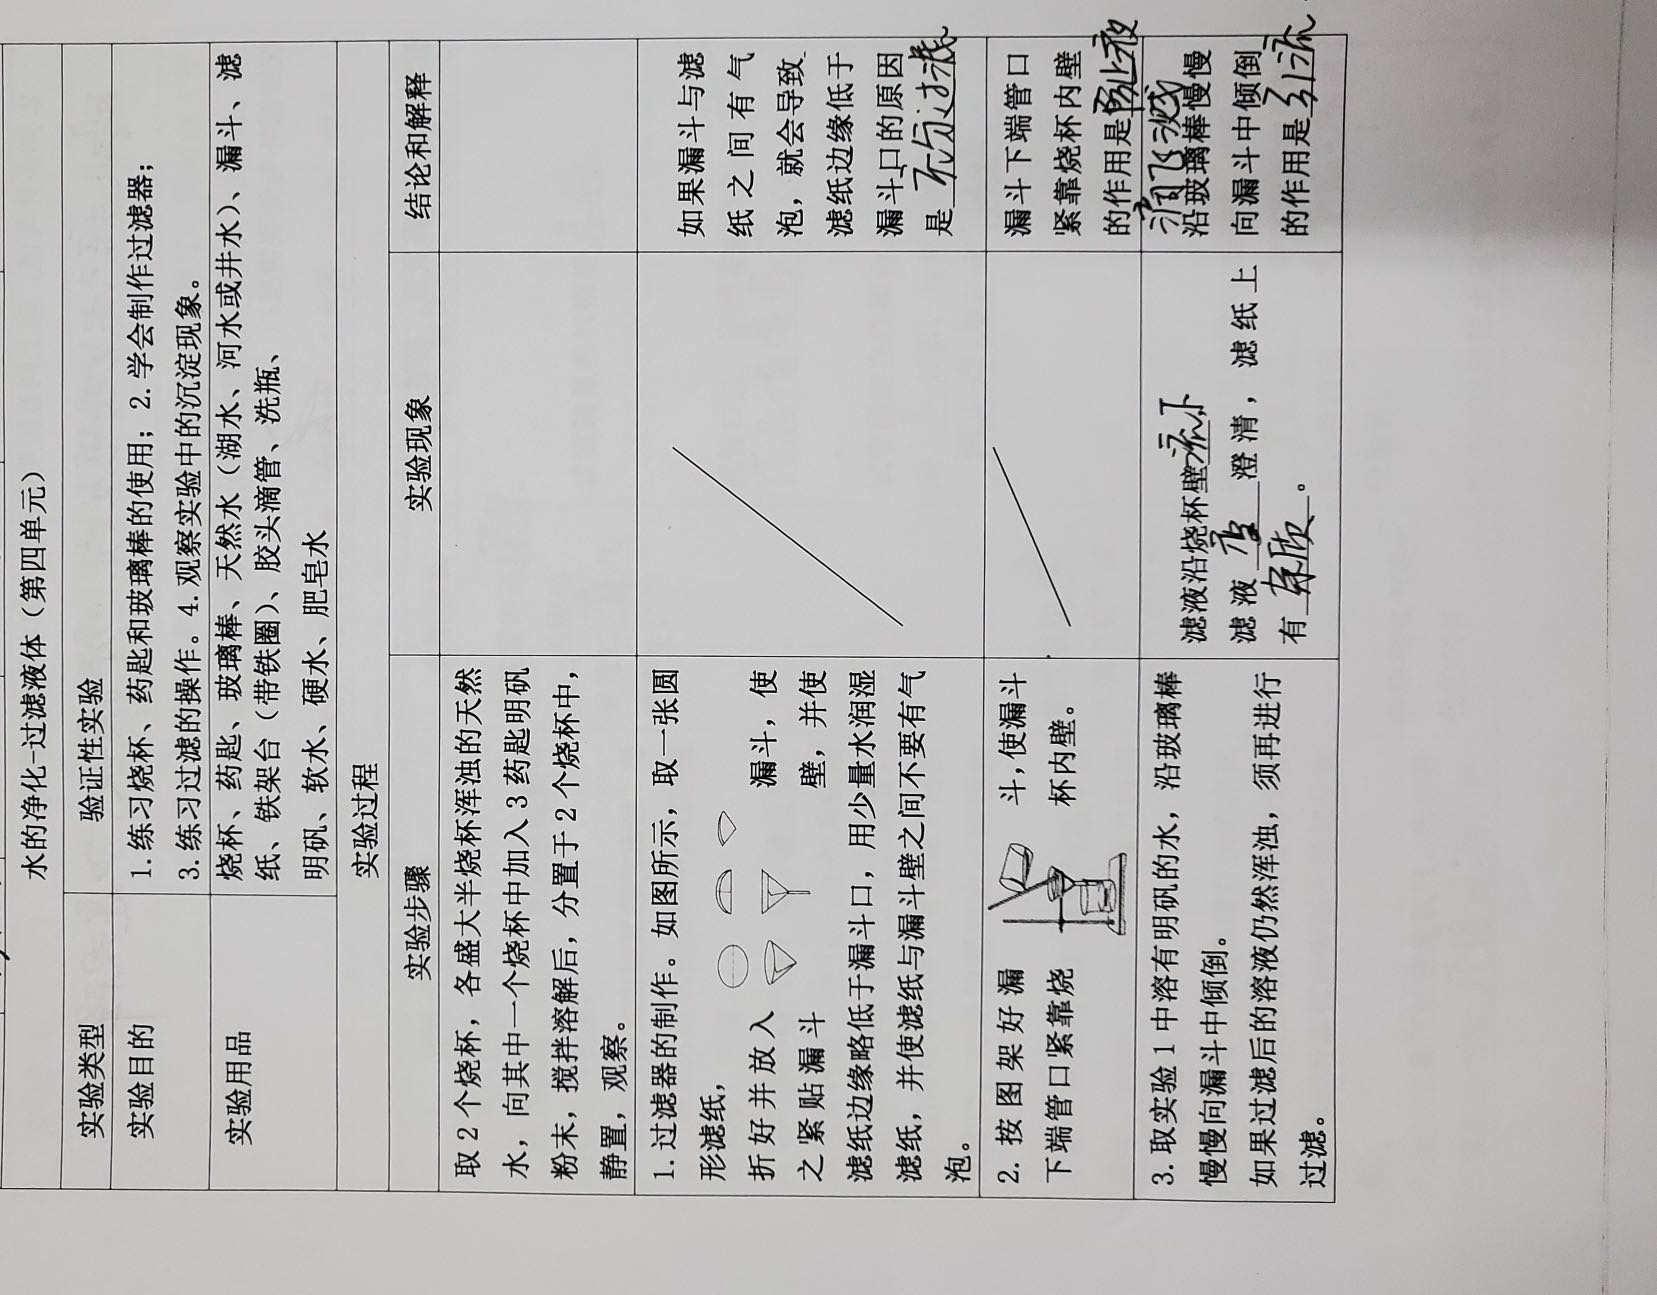 水的净化-过滤液体（第四单元）
实验类型
验证性实验
实验目的
1.练习烧杯、药匙和玻璃棒的使用；2.学会制作过滤器；
3.练习过滤的操作。4.观察实验中的沉淀现象。
实验用品
烧杯、药匙、玻璃棒、天然水（湖水、河水或井水）、漏斗、滤
纸、铁架台（带铁圈）、胶头滴管、洗瓶、
明矾、软水、硬水、肥皂水
实验过程
实验步骤
实验现象
结论和解释
取2个烧杯，各盛大半烧杯浑浊的天然
水，向其中一个烧杯中加入3药匙明矾
粉末，搅拌溶解后，分置于2个烧杯中，
静置，观察。
1.过滤器的制作。如图所示，取一张圆
形滤纸，
折好并放入 漏斗，使
之紧贴漏斗 壁，并使
滤纸边缘略低于漏斗口，用少量水润湿
滤纸，并使滤纸与漏斗壁之间不要有气
泡。
如果漏斗与滤
纸之间有气
泡，就会导致
滤纸边缘低于
漏斗口的原因
是
2.按图架好漏 斗,使漏斗
下端管口紧靠烧 杯内壁。
漏斗下端管口
紧靠烧杯内壁
的作用是防止液
滴飞溅
3.取实验1中溶有明矾的水，沿玻璃棒
慢慢向漏斗中倾倒。
如果过滤后的溶液仍然浑浊，须再进行
过滤。
滤液沿烧杯壁流下
滤液 澄清，滤纸上
有杂质。
沿玻璃棒慢慢
向漏斗中倾倒
的作用是引流